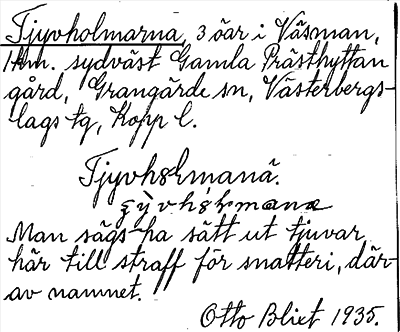 Tjyvholmarna, 3 öar i Väsman,
1 km. sydväst Gamla Prästhyttan
gård, Grangärde sn, Västerbergs-
lags tg, Kopp l.
Tjyvhɵlmanä.
Man sägs ha sått ut tjuvar
här till straff för snatteri, där-
av namnet.
Otto Blixt 1935.